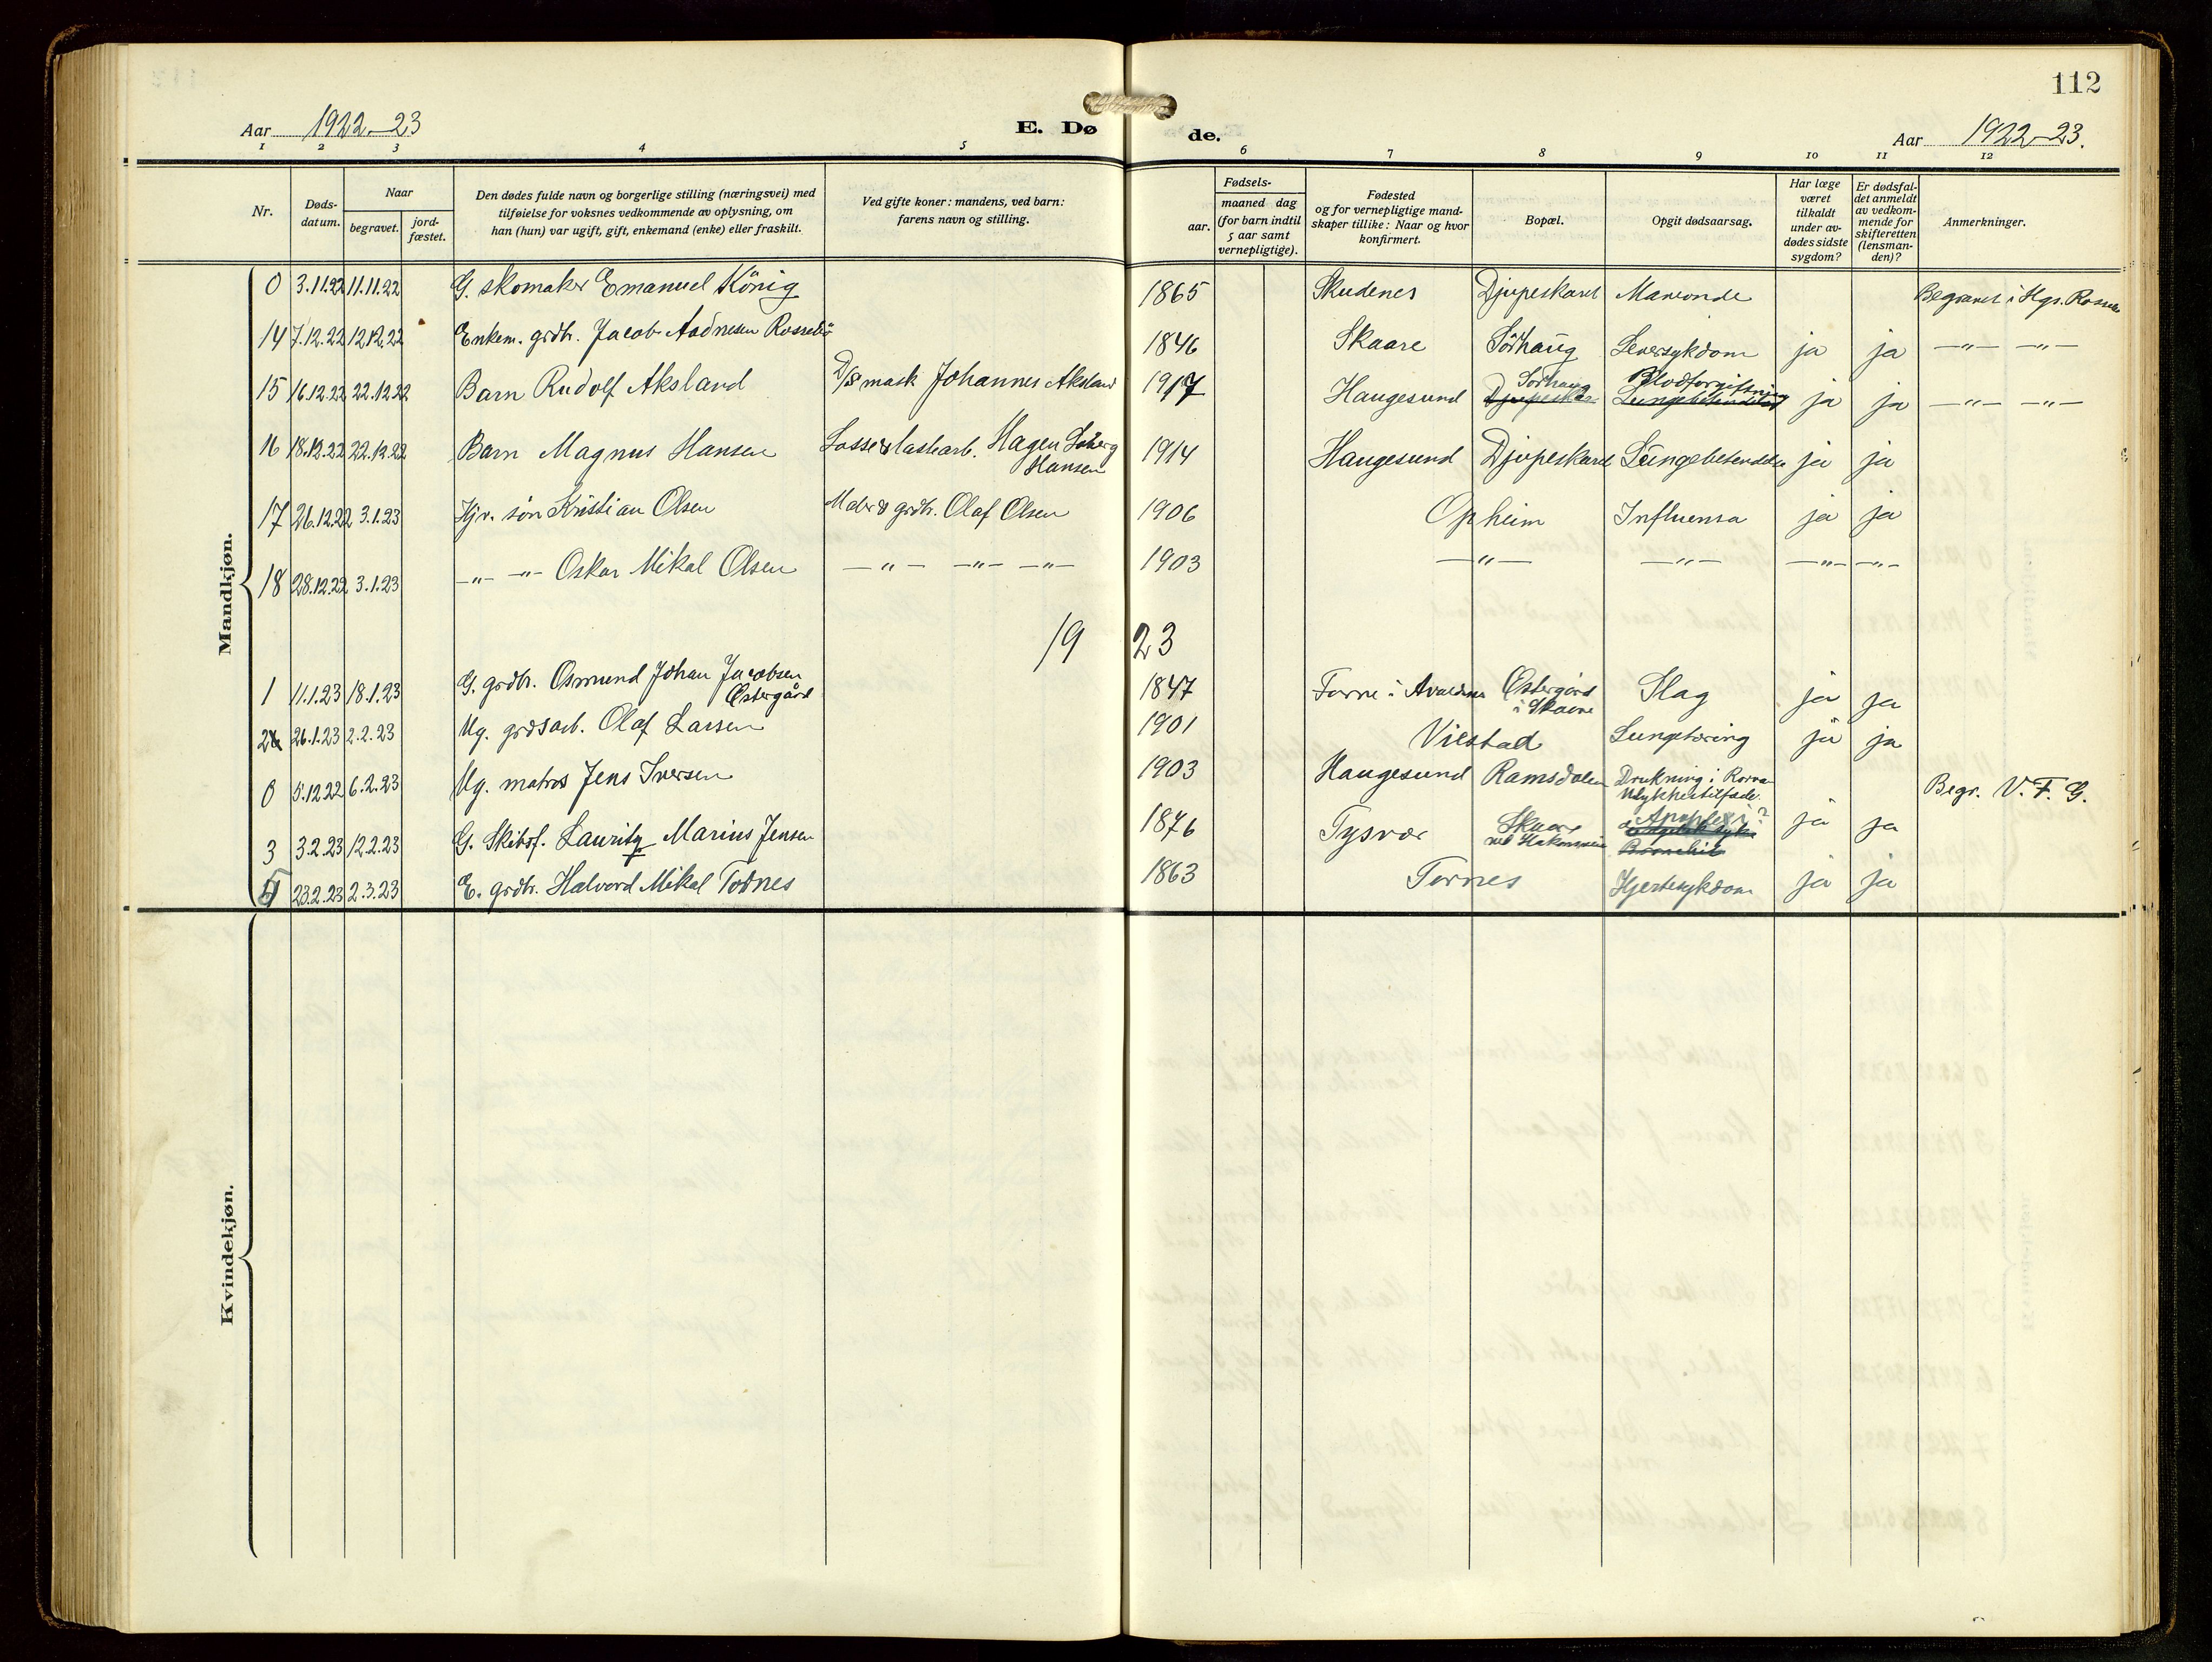 112
Aar 1922-23 E. Dø de. Aar 1922-23.
1 2 3 4 5 6 7 8 9 10 11 12
Nr.
Døds-datum.
Naar
begravet.
jord-fæstet.
Den dødes fulde navn og borgerlige stilling (næringsvei) med
tilføielse for voksnes vedkommende av oplysning, om
han (hun) var ugift, gift, enkemand (enke) eller fraskilt.
Ved gifte koner: mandens, ved barn:
farens navn og stilling.
Fødsels-
aar.
maaned dag
(for barn indtil
5 aar samt
vernepligtige).
Fødested
og for vernepligtige mand-
skaper tillike: Naar og hvor
konfirmert.
Bopæl.
Opgit dødsaarsag.
Har læge
været
tilkaldt
under av-
dødes sidste
sygdom?
Er dødsfal-
det anmeldt
av vedkom-
mende for
skifteretten
(lensman-
den)?
Anmerkninger.
Mandkjøn.
0 3.11.22 11.11.22 G. skomaker Emanuel König 1865 Skudenes Djupeskard Begravet i Hgs.
14 7.12.22 12.12.22 Enkem. grdbr. Jacob Aadnesen Rossebö 1846 Skaare Sörhaug Leversykdom ja ja —"— —"—
15 16.12.22 22.12.22 Barn Rudolf Aksland D/S mask Johannes Aksland 1917 Haugesund Sörhaug Djupeskar Blodforgiftning Lungebetendelse ja ja —"— —"—
16 18.12.22 22.12.22 Barn Magnus Hansen Losse & lastearb. Hagen Soberg Hansen 1914 Haugesund Djupeskard Lungebetendelse ja ja
17 26.12.22 3.1.23 Hjv. sön Kristian Olsen Maler & grdbr. Olaf Olsen 1906 Opheim Influensa ja ja
18 28.12.22 3.1.23 —"— —"— Oskar Mikal Olsen —"— —"— —"— 1903 —"— —"— —"— —"—
19 23
1 11.1.23 18.1.23 G. grdbr. Osmund Johan Jacobsen Østergård 1847 i Avaldsnes Østergård i Skaare Slag ja ja
2 26.1.23 2.2.23 Ug. grdsarb. Olaf Larsen 1901 Vilstad Lungetæring ja ja
0 5.12.22 6.2.23 Ug. matros Jens Iversen 1903 Haugesund Ramsdalen Drukning i Ulykkestilfælde. Begr. V. F. G.
3 3.2.23 12.2.23 G. Skibsf. Lauritz Marius Jensen 1876 Tysvær Skaare ved Apoplexi? Bronchit ja ja
23.2.23 2.3.23 E. grdbr. Halvord Mikal Tornes 1863 Tornes Hjertesykdom ja ja
Kvindekjøn.